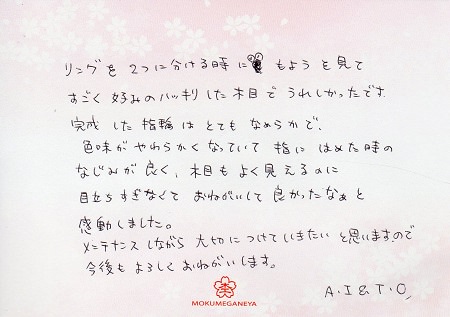 リングを2つに分ける時に もようを見て
すごく好みのハッキリした木目でうれしかったです。
完成した指輪はとてもなめらかで、
色味がやわらかくなっていて指にはめた時の
なじみが良く、木目もよく見えるのに
目立ちすぎなくておねがいして良かったなぁと
感動しました。
メンテナンスしながら大切につけていきたいと思いますので
今後もよろしくおねがいします。
A.I&T.O
MOKUMEGANEYA